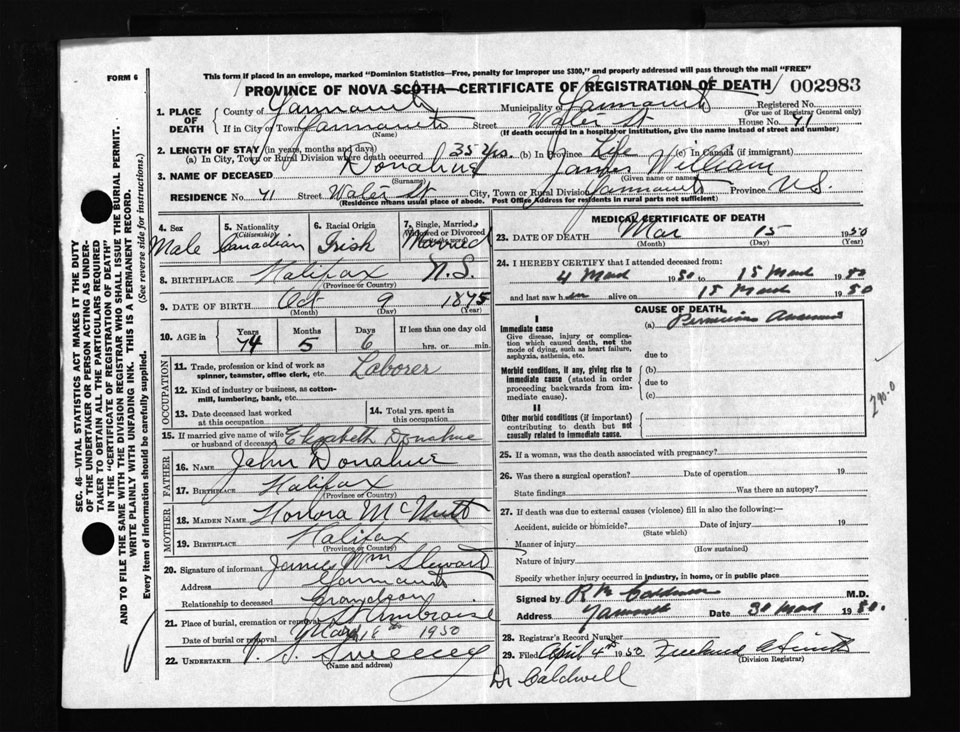 FORM 6
This form if placed in an envelope, marked "Dominion Statistics—Free, penalty for improper use $300," and properly addressed will pass through the mail "FREE"
PROVINCE OF NOVA SCOTIA—CERTIFICATE OF REGISTRATION OF DEATH 002983
1. PLACE OF DEATH County of Yarmouth Municipality of Yarmouth Registered No.
(For use of Registrar General only)
If in City or Town Yarmouth Street Water St House No. 41
(Name) (If death occurred in a hospital or institution, give the name instead of street and number)
2. LENGTH OF STAY (in years, months and days)
(a) In City, Town or Rural Division where death occurred 35 yrs. (b) In Province Life (c) In Canada (if immigrant)
3. NAME OF DECEASED Donahue James William
(Surname) (Given name or names)
RESIDENCE No. 41 Street Water St City, Town or Rural Division Yarmouth Province N.S.
(Residence means usual place of abode. Post Office Address for residents in rural parts not sufficient)
4. Sex Male
5. Nationality (Citizenship) Canadian
6. Racial Origin Irish
7. Single, Married, Widowed or Divorced Married
8. BIRTHPLACE Halifax N.S.
(Province or Country)
9. DATE OF BIRTH Oct 9 1875
(Month) (Day) (Year)
10. AGE in Years 74 Months 5 Days 6 If less than one day old hrs. or min.
OCCUPATION
11. Trade, profession or kind of work as spinner, teamster, office clerk, etc. Laborer
12. Kind of industry or business, as cotton-mill, lumbering, bank, etc.
13. Date deceased last worked at this occupation
14. Total yrs. spent in this occupation
15. If married give name of wife or husband of deceased Elizabeth Donahue
FATHER
16. NAME John Donahue
17. BIRTHPLACE Halifax
(Province or Country)
MOTHER
18. MAIDEN NAME Honora McNutt
19. BIRTHPLACE Halifax
(Province or Country)
20. Signature of informant James Wm Stewart
Address Yarmouth
Relationship to deceased Grandson
21. Place of burial, cremation or removal St Ambroise
Date of burial or removal March 18th 1950
22. UNDERTAKER V. S. Sweeney
(Name and address)
MEDICAL CERTIFICATE OF DEATH
23. DATE OF DEATH Mar 15 1950
(Month) (Day) (Year)
24. I HEREBY CERTIFY that I attended deceased from:
4 March 1950 to 15 March 1950
and last saw him alive on 15 March 1950
CAUSE OF DEATH
I
Immediate cause (a) Pernicious Anaemia
Give disease, injury or complication which caused death, not the mode of dying, such as heart failure, asphyxia, asthenia, etc. due to
Morbid conditions, if any, giving rise to immediate cause (stated in order proceeding backwards from immediate cause). (b) due to (c)
II
Other morbid conditions (if important) contributing to death but not causally related to immediate cause.
290.0
25. If a woman, was the death associated with pregnancy?
26. Was there a surgical operation? Date of operation 19
State findings Was there an autopsy?
27. If death was due to external causes (violence) fill in also the following:—
Accident, suicide or homicide? Date of injury 19
(State which)
Manner of injury
(How sustained)
Nature of injury
Specify whether injury occurred in industry, in home, or in public place
Signed by R M Caldwell M.D.
Address Yarmouth Date 30 Mar 1950.
28. Registrar's Record Number
29. Filed April 4th 1950
(Division Registrar)
Dr Caldwell
SEC. 46—VITAL STATISTICS ACT MAKES IT THE DUTY
OF THE UNDERTAKER OR PERSON ACTING AS UNDER-
TAKER TO OBTAIN ALL THE PARTICULARS REQUIRED
IN THE "CERTIFICATE OF REGISTRATION OF DEATH"
AND TO FILE THE SAME WITH THE DIVISION REGISTRAR WHO SHALL ISSUE THE BURIAL PERMIT.
WRITE PLAINLY WITH UNFADING INK. THIS IS A PERMANENT RECORD.
Every item of Information should be carefully supplied. (See reverse side for instructions.)